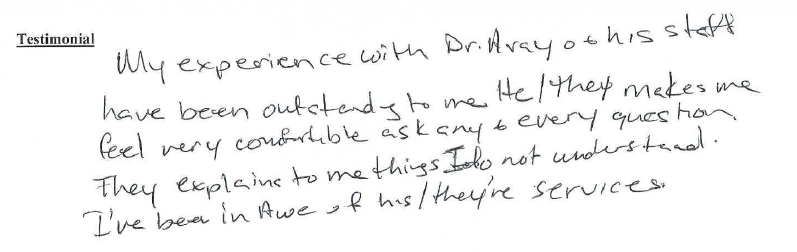 Testimonial
My experience with Dr. Aray & his staff
have been outstandg to me. He/they makes me
feel very comfortible ask any & every question.
They explains to me things I do not understand.
I've been in Awe of his/they're services.